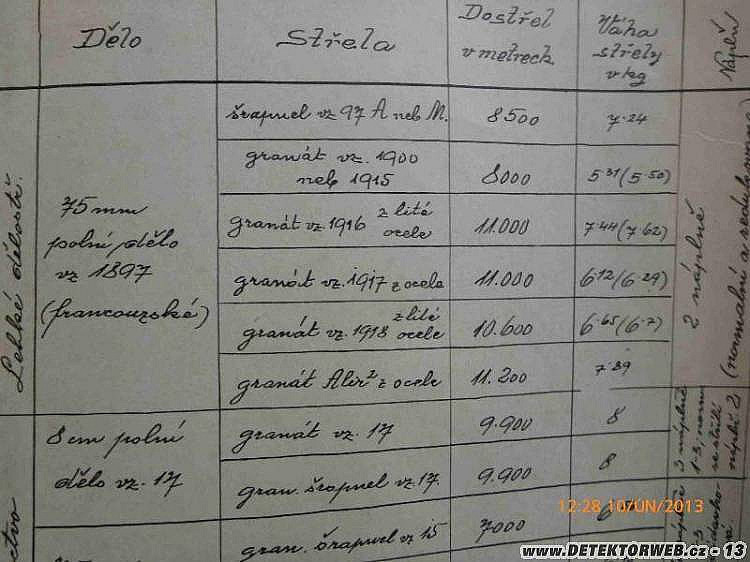 Dělo
Střela
Dostřel
v metrech
Váha
střely
v kg
Náplň
Lehké dělostř.
75 mm
polní dělo
vz 1897
(francouzské)
šrapnel vz 97 A neb M.
8500
7.24
granát vz. 1900
neb 1915
8000
5.31 (5.50)
granát vz 1916 z lité
ocele
11.000
7.44 (7.62)
granát vz. 1917 z ocele
11.000
6.12 (6.29)
granát vz. 1918 z lité
ocele
10.600
6.65 (6.7)
granát z ocele
11.200
7.89
2 náplně
(normalní a
8 cm polní
dělo vz. 17
granát vz. 17
9.900
8
gran. šrapnel vz. 17
9.900
8
3 náplně
náplň 2)
gran. šrapnel vz 15
7000
6
12:28 10/ÚN/2013
www.DETEKTORWEB.cz - 13